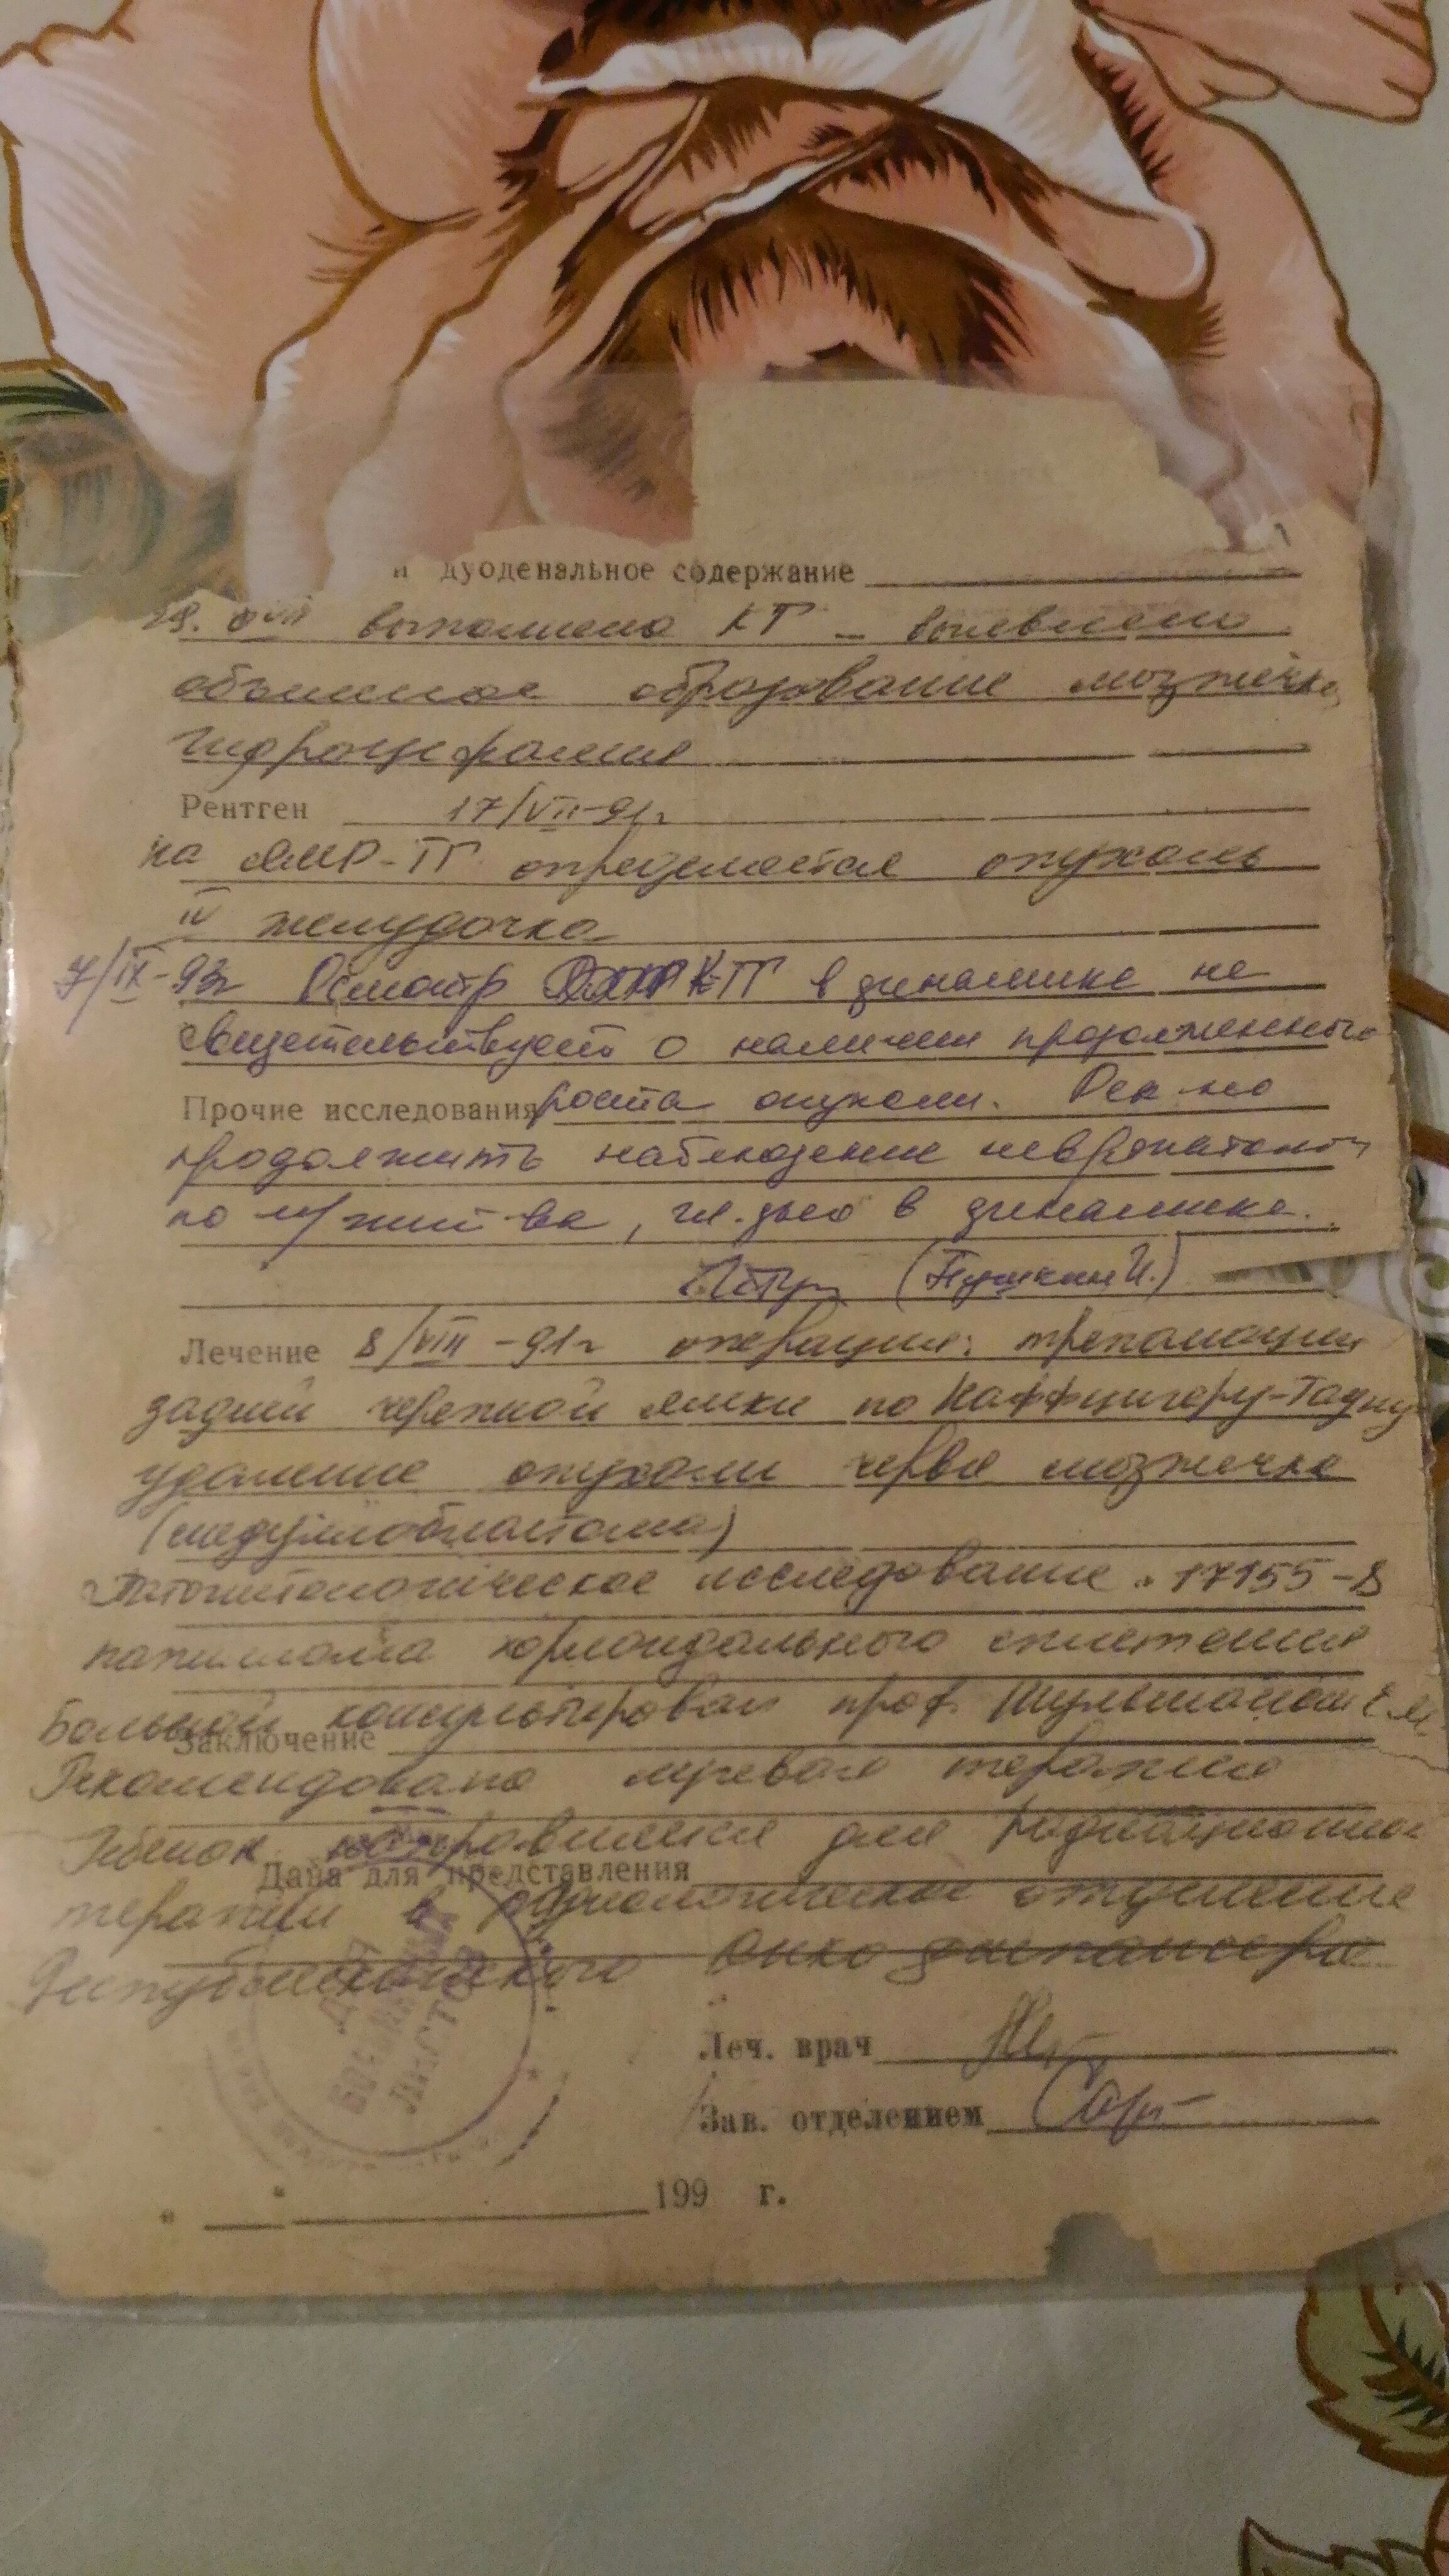 и дуоденальное содержание
выполнена КТ – выявлено
объемное образование мозжечка,
гидроцефалия
Рентген 17/VII-91г
на ЯМР-ТГ определяется опухоль
IV желудочка
7/IX-93г Осмотр К-ТГ в динамике не
свидетельствует о наличии продолженного
Прочие исследования роста опухоли. Рек-но
продолжить наблюдение невропатолог
по м/жит-ва, гл. дно в динамике.
(Пушкин И.)
Лечение 8/VIII-91г операция: трепанация
задней черепной ямки по Наффцигеру-Тауну
удаление опухоли червя мозжечка
(медуллобластома)
Патогистологическое исследование 17155-8
папиллома хориоидального сплетения
Больной консультирован проф.
Заключение
Рекомендовано лучевая терапия
Ребенок направляется для радиационной
Дана для представления
терапии в радиологическое отделение
Республиканского онкодиспансера
ДЛЯ
БОЛЬНИЧНЫХ
ЛИСТОВ
Леч. врач
Зав. отделением
" " 199 г.